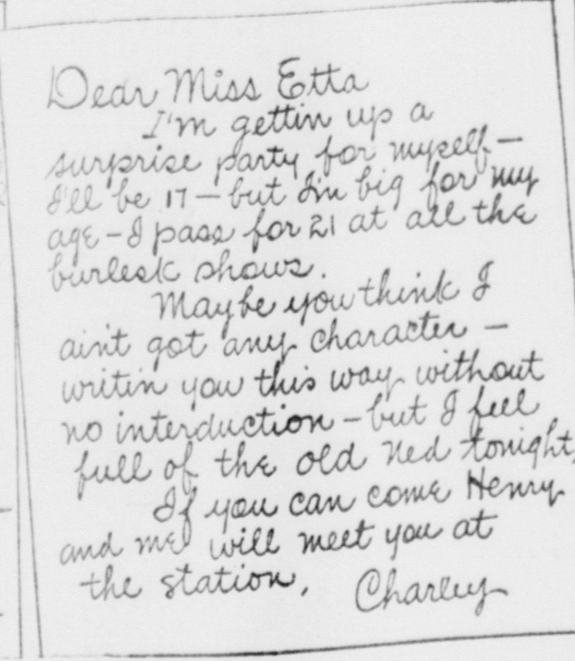 Dear Miss Etta
I'm gettin up a
surprise party for myself—
I'll be 17—but I'm big for my
age—I pass for 21 at all the
burlesk shows.
Maybe you think I
ain't got any character—
writin you this way without
no interduction—but I feel
full of the old Ned tonight,
If you can come Henry
and me will meet you at
the station,
Charley